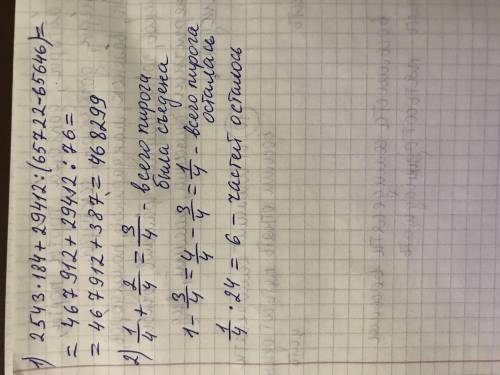 1) 2543·184+29412:(65722-65646)=
= 467912+29412:76=
= 467912+387=468299
2) 1/4 + 2/4 = 3/4 - всего пирога
была съедена
1 - 3/4 = 4/4 - 3/4 = 1/4 - всего пирога
осталась
1/4 · 24 = 6 - частей осталось